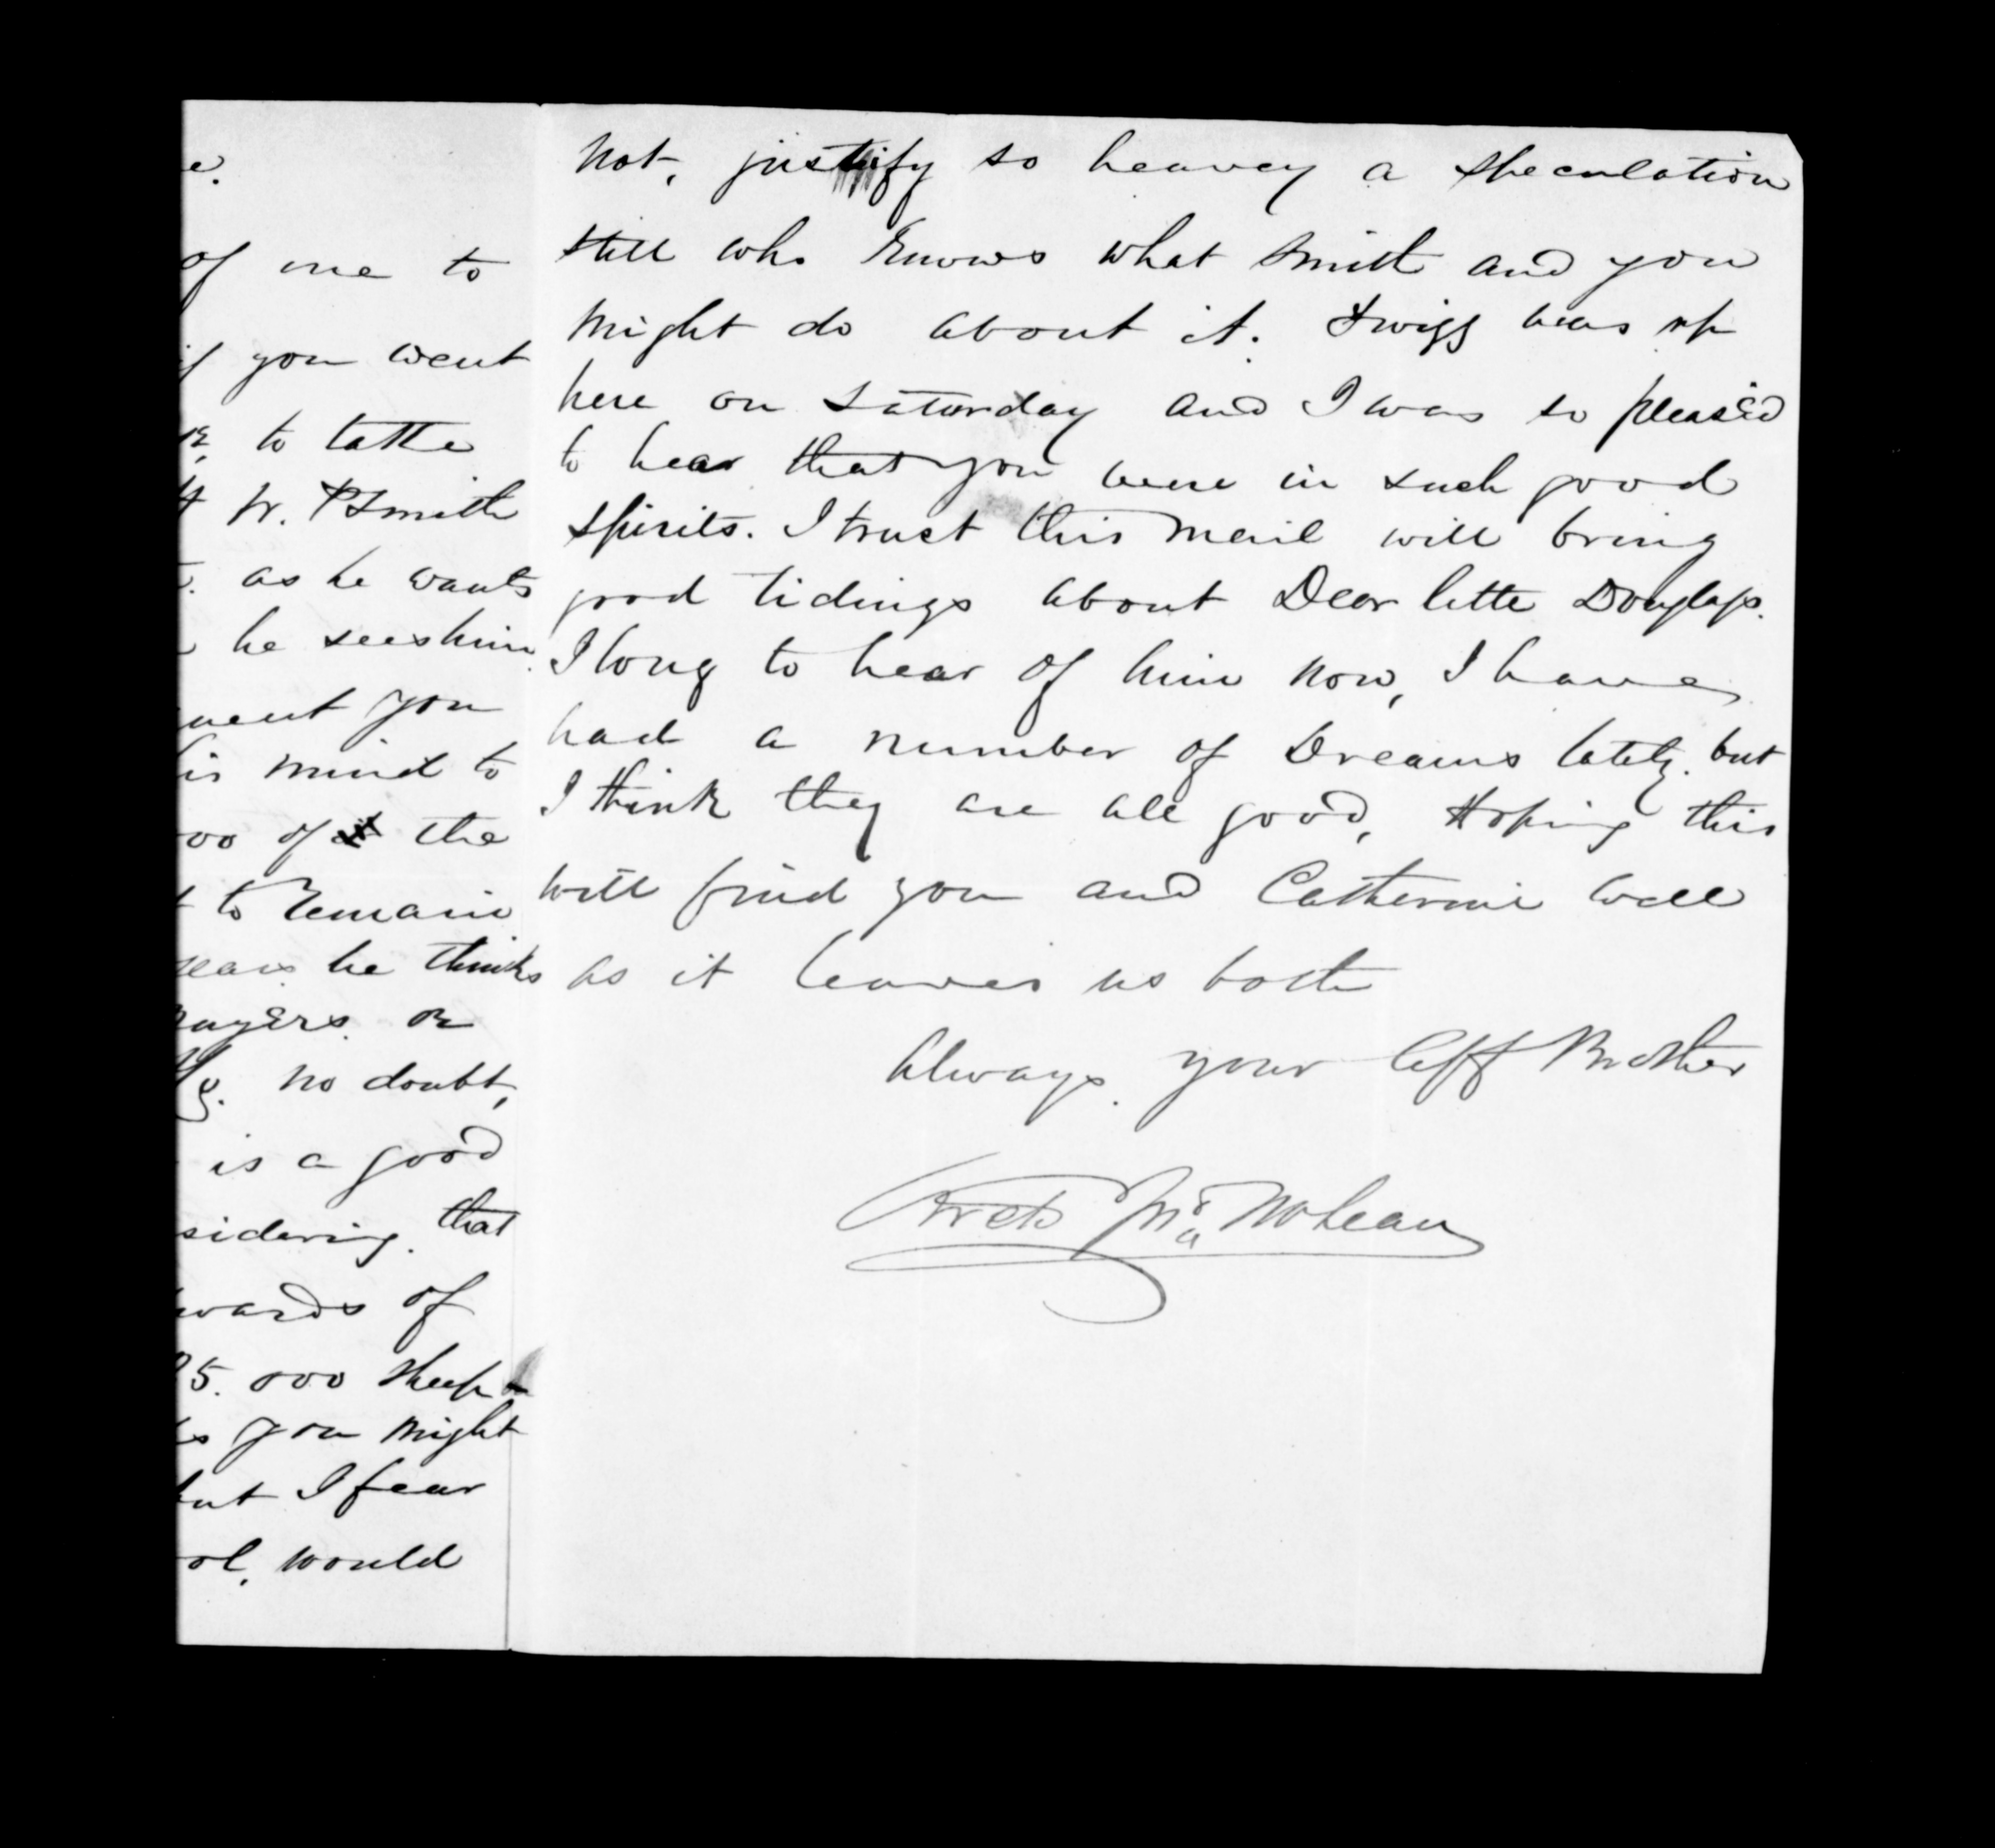 e.
of me to
if you went
to talke
W. P Smith
as he wants
he sees him
you
his mind to
000 of the
to Remain
years he thinks
or
no doubt,
is a good
sidering. that
wards of
25.000 sheep
you might
but I fear
ol, would
not, justify so heavey a speculation
still who knows what Smith and you
might do about it. Twigg was up
here on Saturday and I was so pleased
to hear that you were in such good
spirits. I trust this mail will bring
good tidings about Dear little Douglass.
I long to hear of him now, I have
had a number of Dreams lately. but
I think they are all good, Hoping this
will find you and Catherine well
as it leaves us both
Always your Aff Brother
Archd McLean